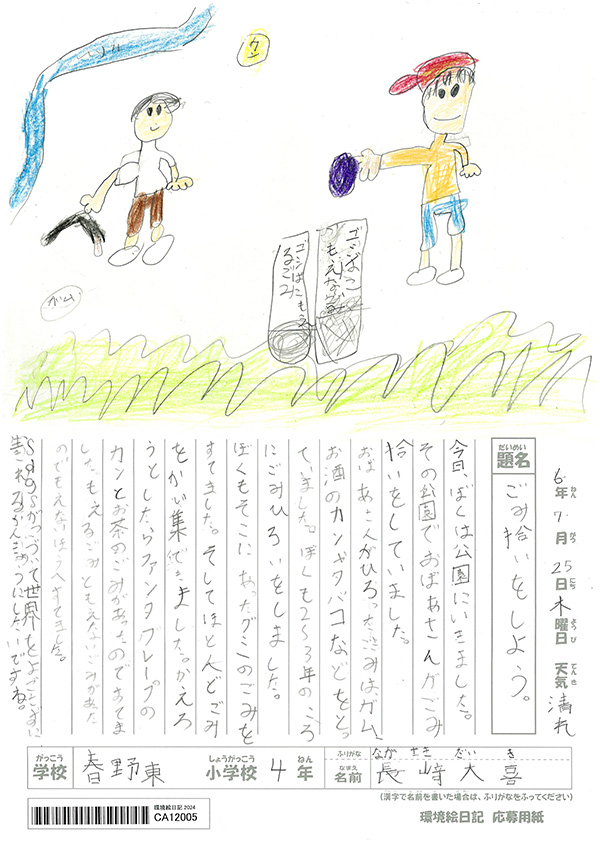 ケン
ガム
ゴミばこ
もえない
ゴミばこもえ
るごみ
6年 7月 25日 木曜日 天気 清れ
ねん
がつ
にち
ようび
てんき
だいめい
題名
ごみ拾いをしよう。
今日ぼくは公園にいきました。
その公園でおばあさんがごみ
拾いをしていました。
おばあさんがひろったごみはガム、
お酒のカンやタバコなどをとっ
ていました。ぼくも2〜3年のころ
にごみひろいをしました。
ぼくもそこにあったグミのごみを
すてました。そしてほとんどごみ
をかい集できました。かえろ
うとしたらファンタグレープの
カンとお茶のごみがあったのできてま
した。もえるごみともえないごみがあた
のでもえないほうへすてました。
Sdgsがつづいて世界をよごさずに
がっこう
学校
春野東
しょうがっこう
小学校
4
ねん
年
ふりがな
ながさき だいき
なまえ
名前
長崎大喜
(漢字で名前を書いた場合は、ふりがなをふってください)
環境絵日記 2024
CA12005
環境絵日記 応募用紙